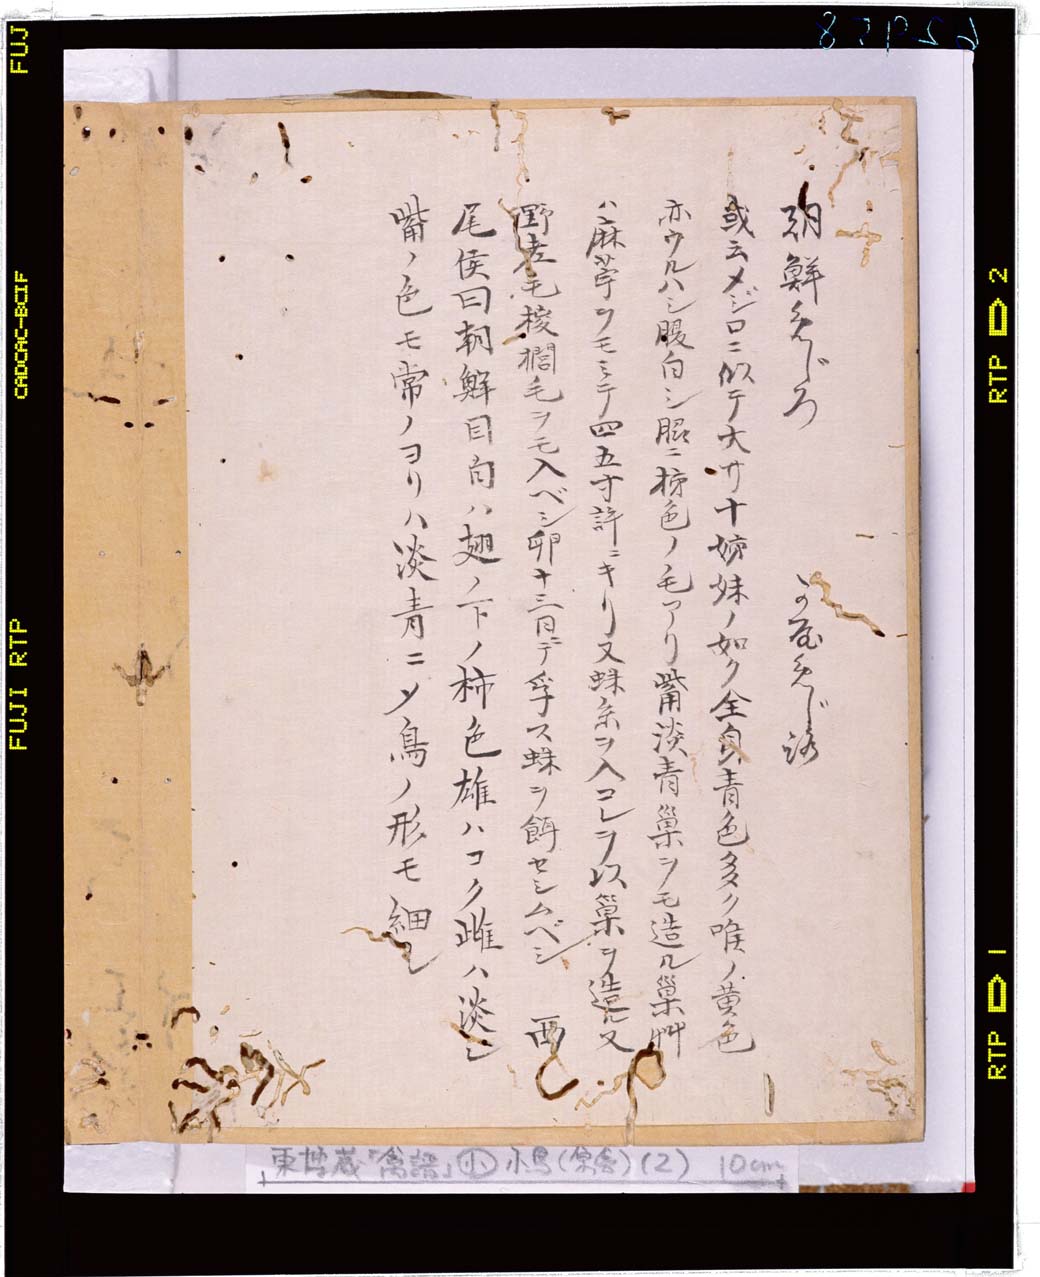 朝鮮めじろ
或云メジロニ似テ大サ十姉妹ノ如ク全身青色多ク喉ノ黄色
亦ウルハシ腹白シ脇ニ柿色ノ毛アリ觜淡青巣ヲモ造ル巣艸
ハ麻苧ヲモミテ四五寸許ニキリ又蛛糸ヲ入コレヲ以巣ヲ造ル又
野蚕毛椶櫚毛ヲモ入ベシ卵十三日ニテ孚ス蛛ヲ餌セシムベシ 西
尾侯曰朝鮮目白ハ翅ノ下ノ柿色雄ハコク雌ハ淡シ
觜ノ色モ常ノヨリハ淡青ニ〆鳥ノ形モ細シ
東博蔵「禽譜」小 小鳥(原禽)(2) 10cm
FUJ
CADCAC-BCIF
FUJI RTP
RTP 2
RTP 1